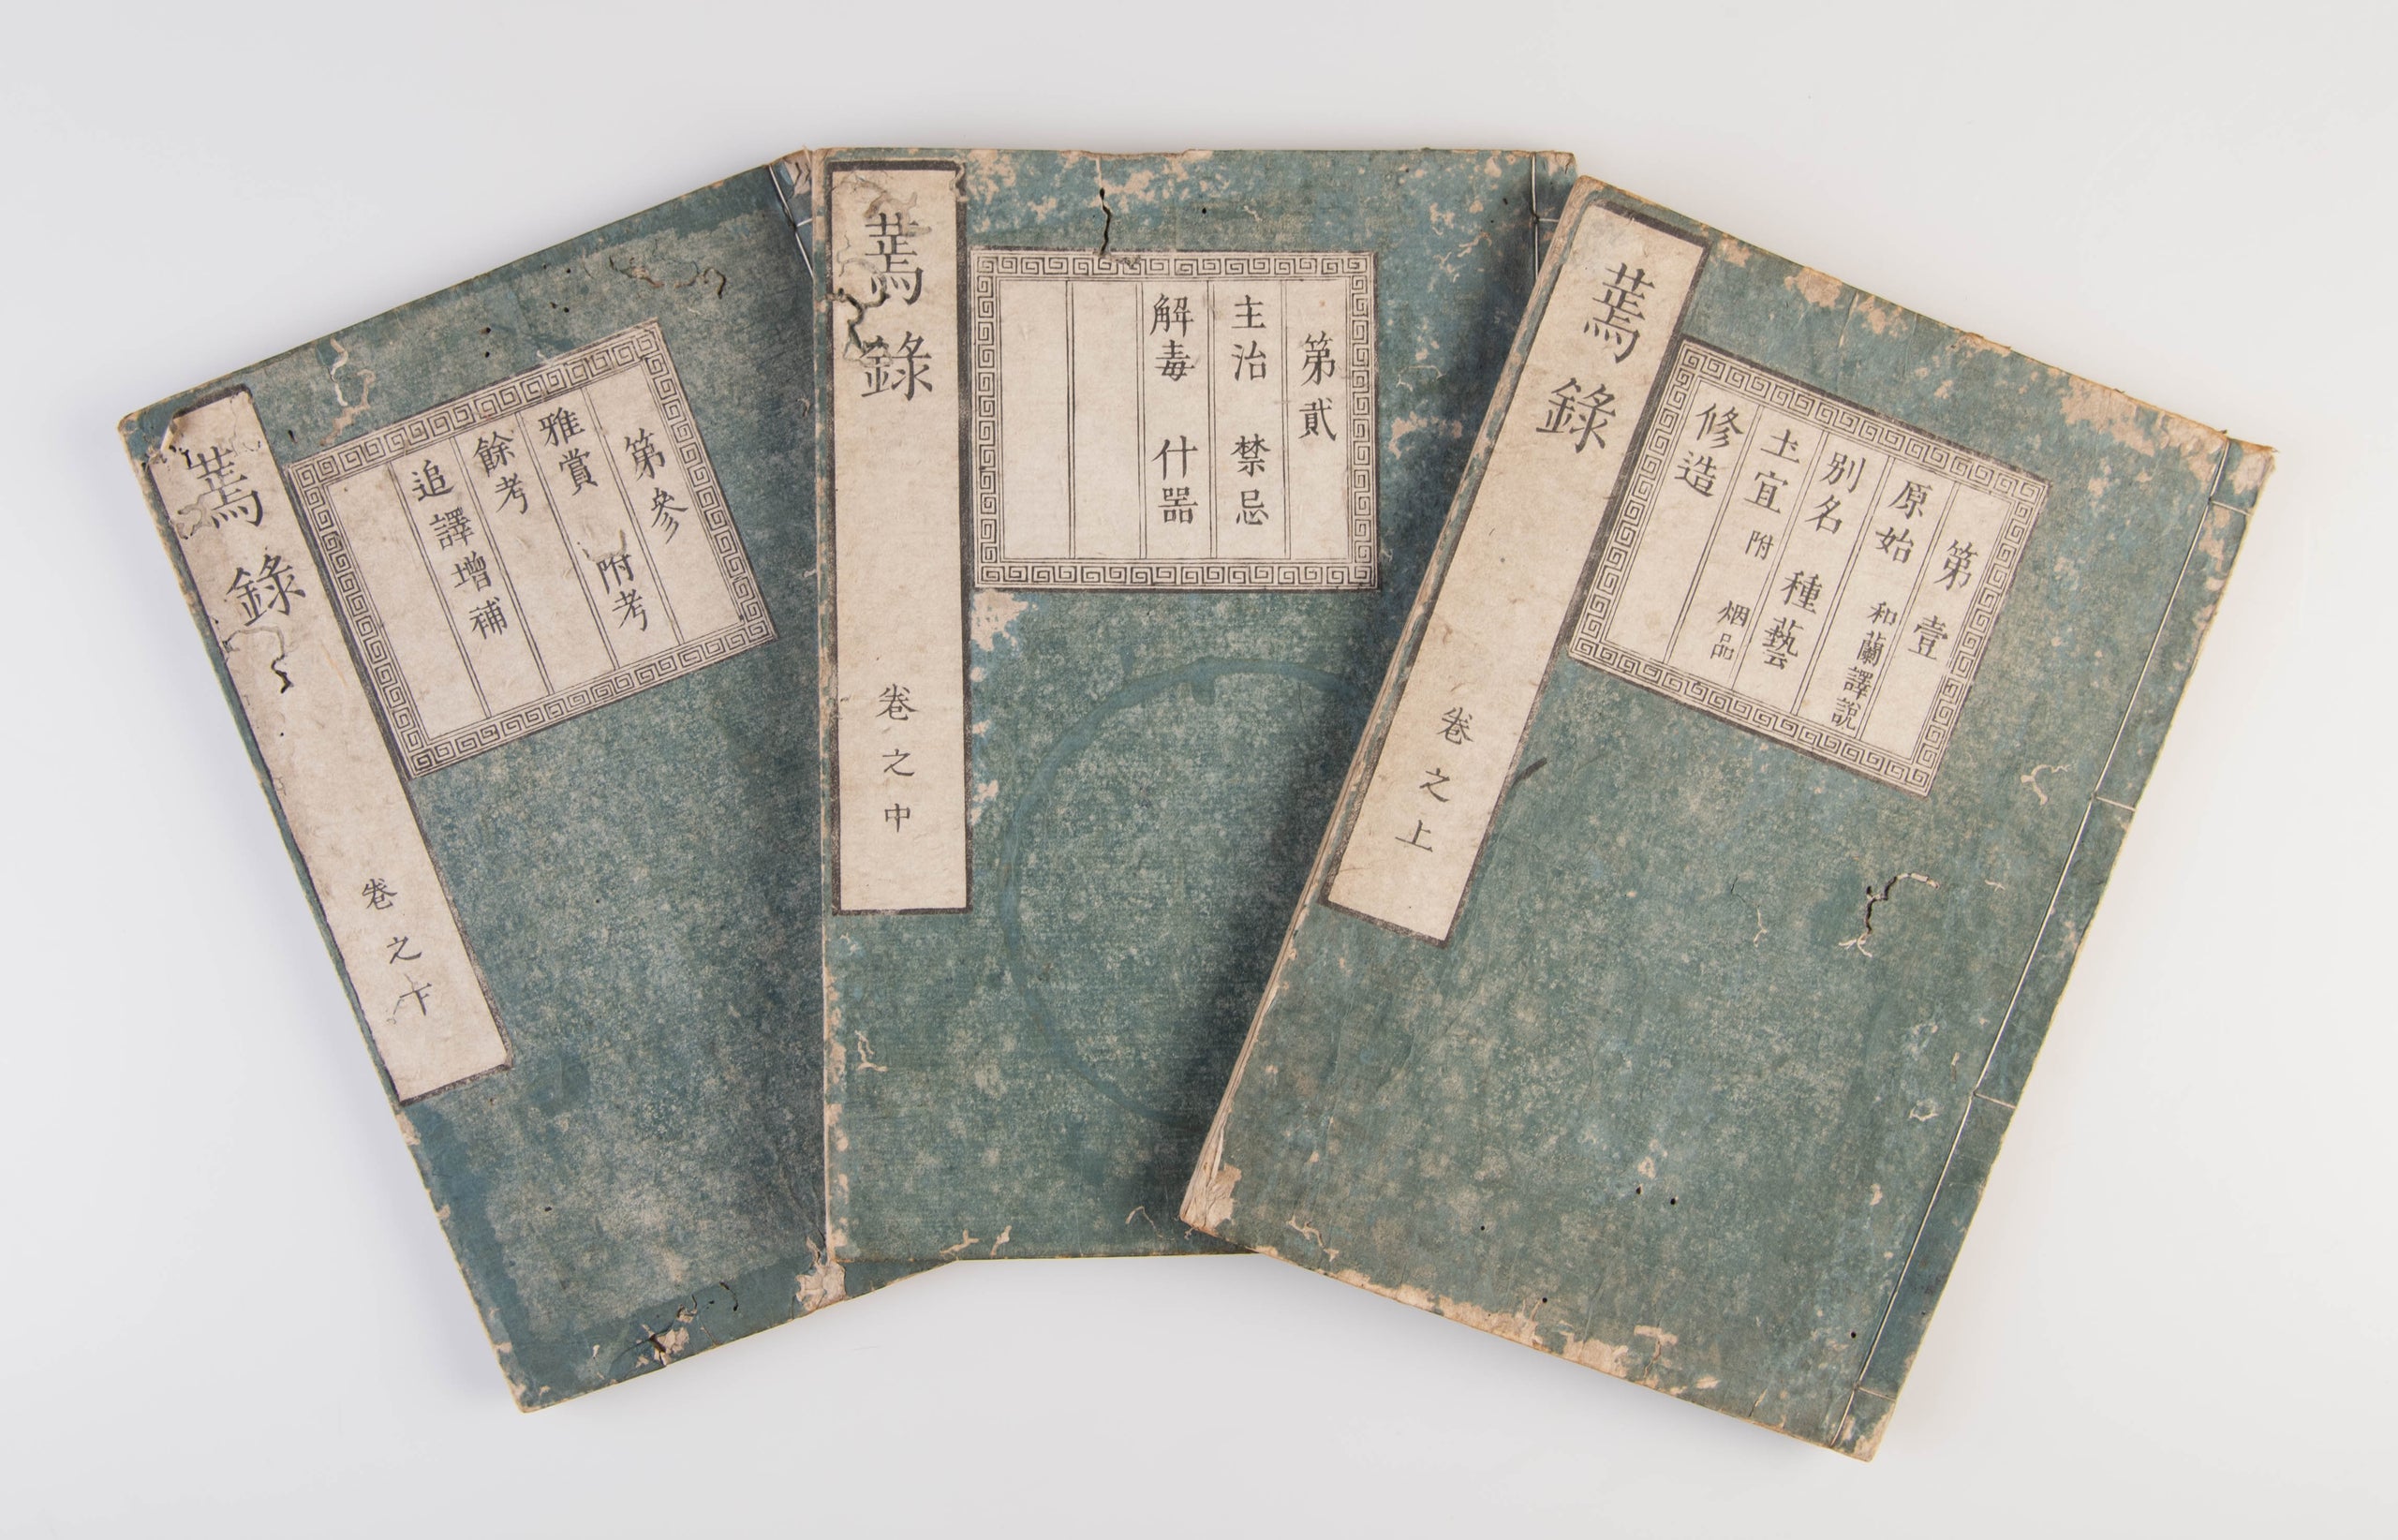 第壹
原始 和蘭譯説
別名 種藝
圡宜 附 烟品
修造
蔫錄 卷之上
第貳
主治 禁忌
解毒 什器
蔫錄 卷之中
第參
雅賞 附考
餘考
追譯增補
蔫錄 卷之下